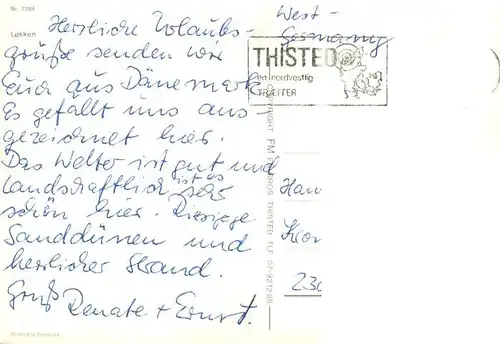 Nr. 7294
Løkken
Herzliche Urlaubs-
grüße senden wir
Euch aus Dänemark.
Es gefällt uns aus-
gezeichnet hier.
Das Wetter ist gut und
landschaftlich ist es sehr
schön hier. Riesige
Sanddünen und
herrlicher Strand.
Gruß
Renate + Ernst.
West-
Germany
THISTED
en nordvestlig
TRÆFFER
COPYRIGHT FM THISTED TLF. 07-921288
Han
Kron
230
Printed in Denmark